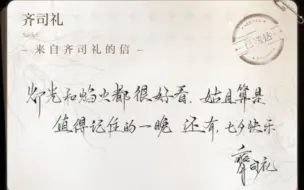 齐司礼
— 来自齐司礼的信 —
灯光和焰火都很好看，姑且算是
值得记住的一晚 还有，七夕快乐
齐司礼